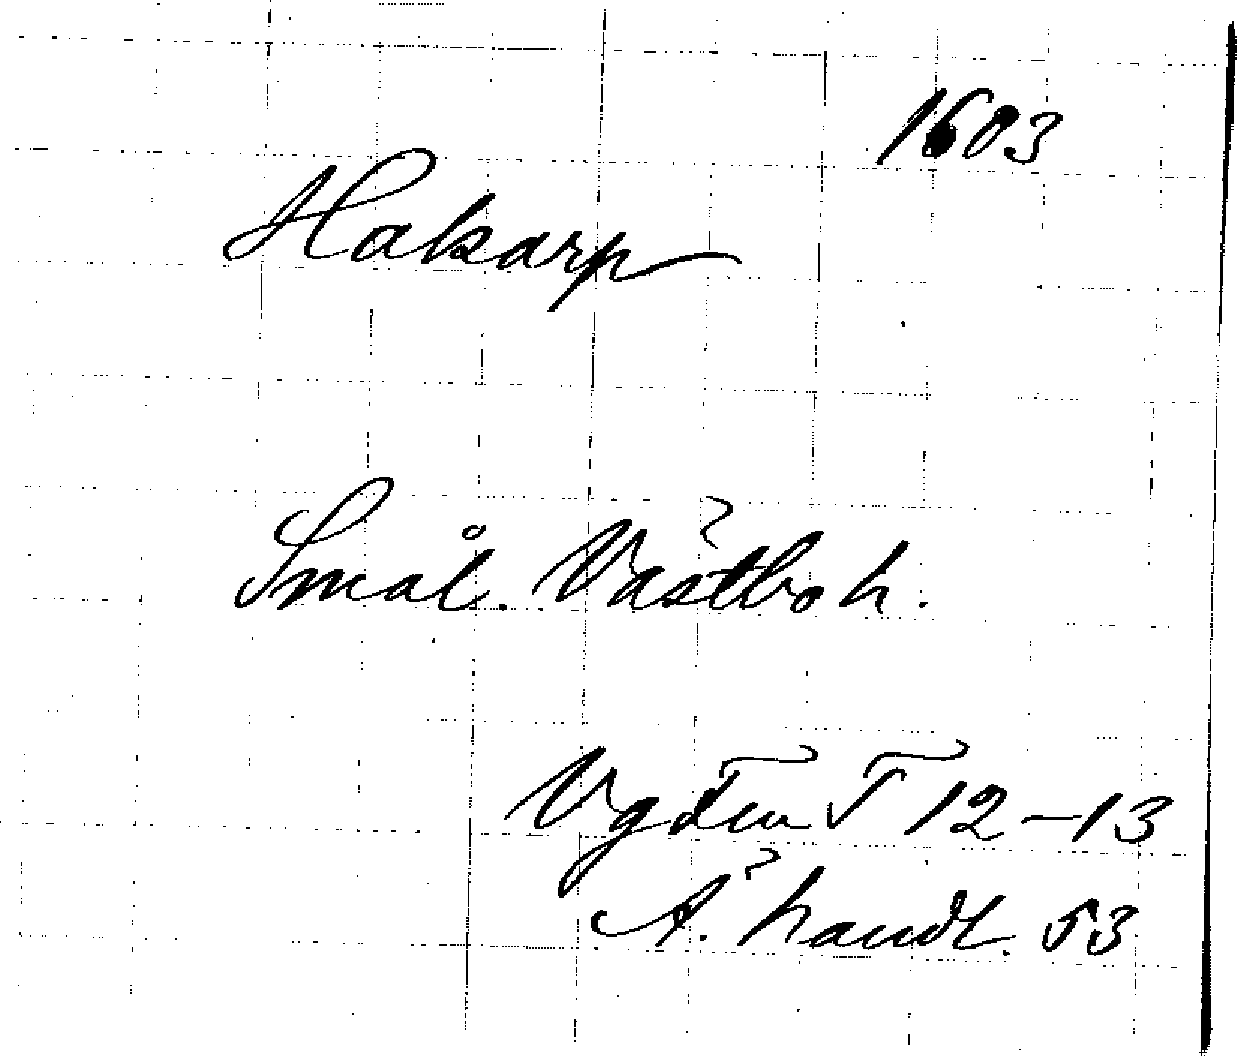 1603
Hakarp
Smål. Västbo h.
Vgöten T 12-13
Ä. handl. 53